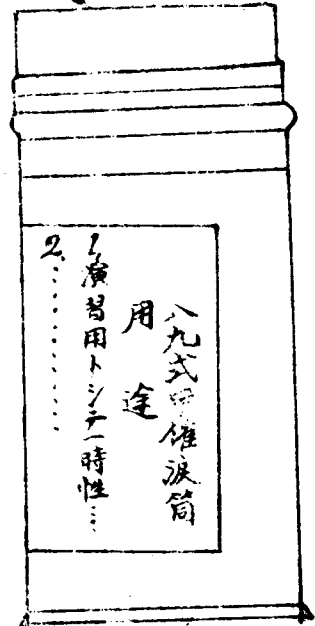 八九式甲催涙筒
用途
1.演習用トシテ一時性…
2.…………